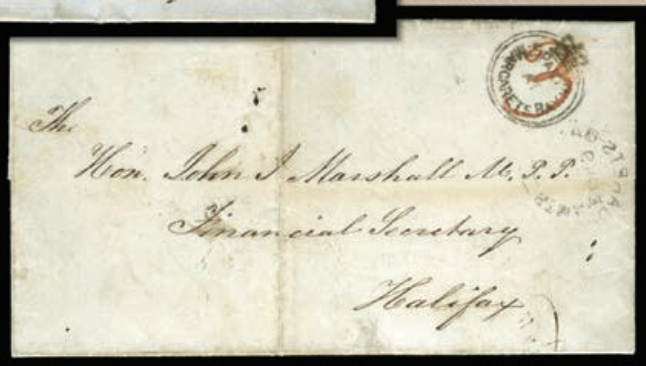 MARGARETS BAY
3
The
Hon. John J Marshall M.P.P.
Financial Secretary
Halifax